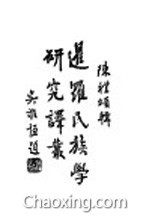 陳禮頌輯
暹羅民族學
研究譯叢
吳敬恒題
Chaoxing.com